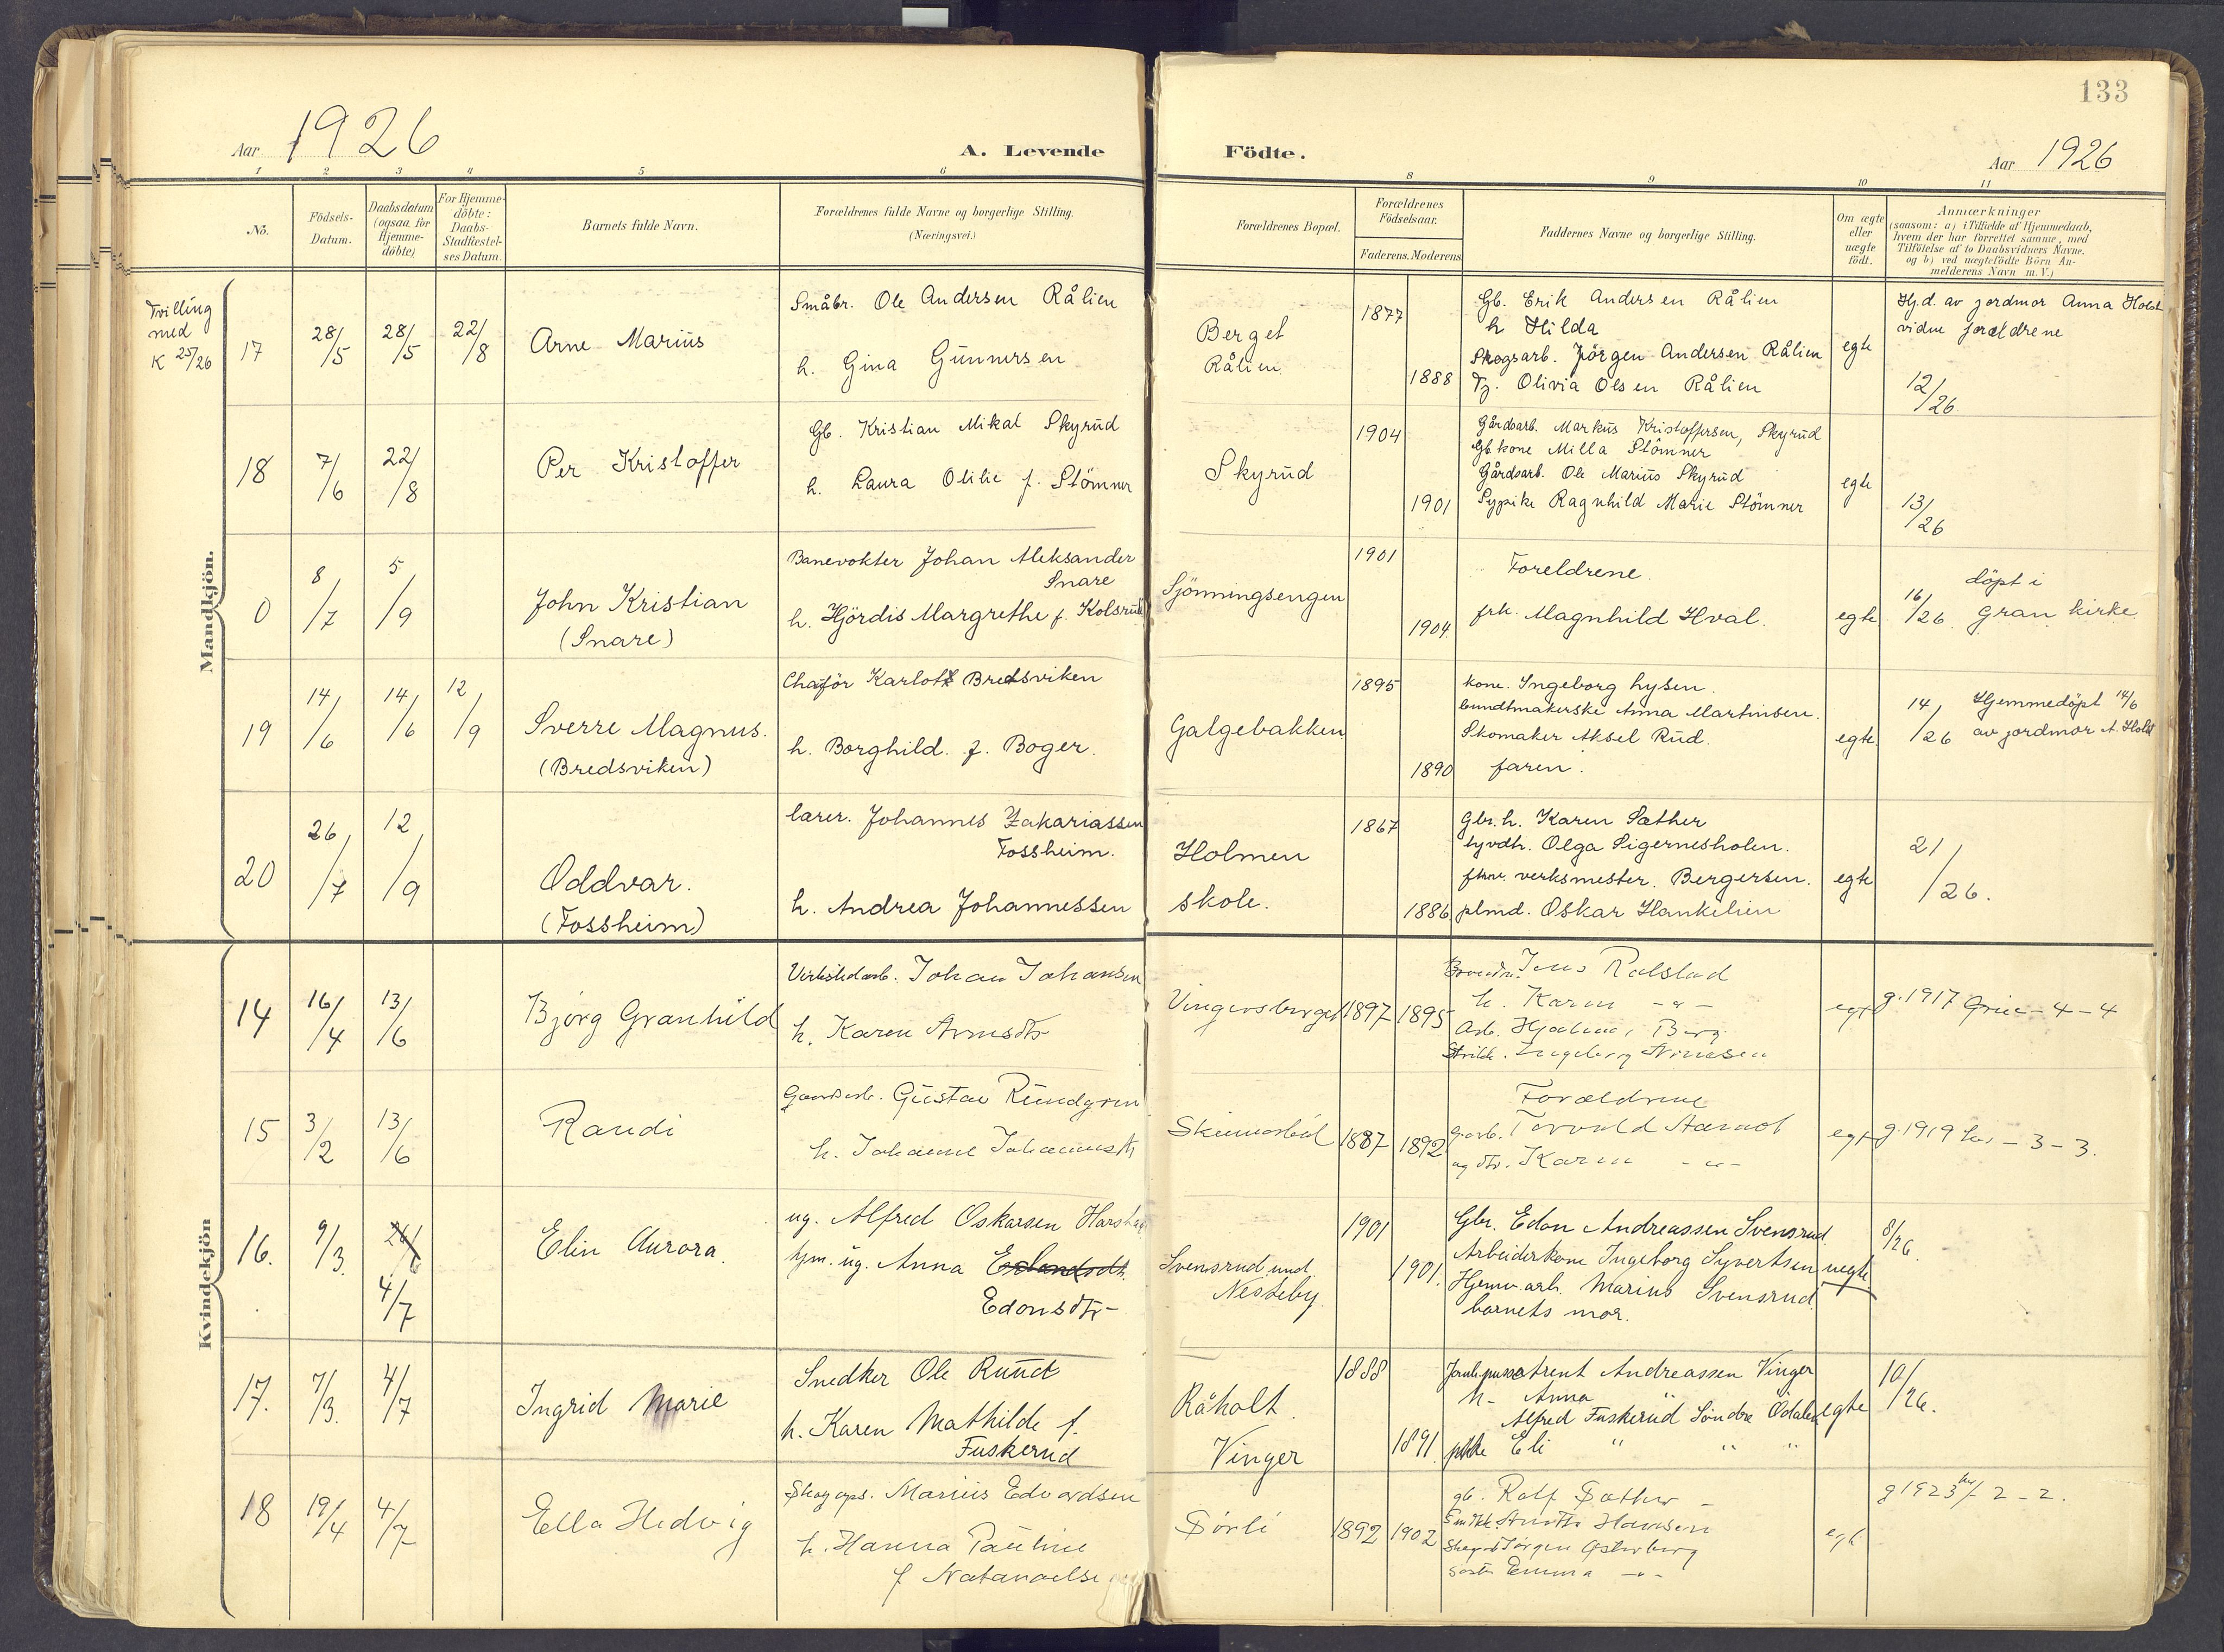 133
Aar 1926
A. Levende
Födte.
Aar 1926
1 2 3 4 5 6
8 9 10 11
No.
Födsels-Datum.
Daabsdatum (ogsaa for Hjemme-döbte)
For Hjemme-döbte: Daabs-Stadfæstel-ses Datum.
Barnets fulde Navn.
Forældrenes fulde Navne og borgerlige Stilling.
(Næringsvei.)
Forældrenes Bopæl.
Forældrenes Födselsaar.
Faderens. Moderens
Faddernes Navne og borgerlige Stilling.
Om ægte eller uægte födt.
Anmærkninger
(saasom: a) i Tilfælde af Hjemmedaab,
hvem der har forrettet samme, med
Tilföielse af to Daabsvidners Navne.
og b) ved uægtefödte Börn An-
melderens Navn m. V.)
Mandkjön.
Tvilling
med
K 25/26
17
28/5
28/5
22/8
Arne Marius
Småbr. Ole Andersen Rålien
h. Gina Gunnersen
Berget
Rålien
1877
1888
Gb. Erik Andersen Rålien
h Hilda
Skogsarb. Jörgen Andersen Rålien
Tj. Olivia Olsen Rålien
egte
Hj.d. av jordmor Anna Holst
vidne foreldrene
12/26
18
7/6
22/8
Per Kristoffer
Gb. Kristian Mikal Skyrud
h. Laura Otilie f. Stömner
Skyrud
1904
1901
Gårdsarb. Markus Kristoffersen, Skyrud
Gb.kone Milla Stömner
Gårdsarb. Ole Marius Skyrud
Sypike Ragnhild Marie Stömner
egte
13/26
0
8/7
5/9
John Kristian
(Snare)
Banevokter Johan Aleksander
Snare
h. Hjördis Margrethe f. Kolsrud
Sjönningsengen
1901
1904
Foreldrene.
frk. Magnhild Hval.
egte
16/26
döpt i
Gran kirke
19
14/6
14/6
12/9
Sverre Magnus.
(Bredsviken)
Chaför Karlot Bredsviken
h. Borghild. f. Boger.
Galgebakken
1895
1890
kone. Ingeborg Lysen.
bundtmakerske Anna Martinsen.
Skomaker Aksel Rud.
faren.
egte
14/26
Hjemmedöpt 14/6
av jordmor A. Holst
20
26/7
12/9
Oddvar.
(Fossheim)
lærer. Johannes Zakariassen
Fossheim.
h. Andrea Johannessen
Holmen
skole.
1867
1886
Gbr. h. Karen Sæther
Olga Sigernesholen.
verksmester. Bergersen.
plmd. Oskar Hankelien
egte
21/26.
Kvindekjön
14
16/4
13/6
Bjørg Granhild
Johan Johansen
h. Karen Arnesdtr
Vingersberget
1897
1895
Jens Rolstad
h. Karen - " -
Arb. Hjalmar Berg
Ingeborg Arnesen
egte
g. 1917 Grue - 4 - 4
15
3/2
13/6
Randi
Gaardsarb. Gustav Rundgren
h. Johanne Johannesdtr
Skinnarböl
1887
1892
Forældrene
Torvald Aamot
ug dtr. Karen - " -
egte
g. 1919 - 3 - 3.
16.
9/3.
4/7
Elin Aurora.
ug. Alfred Oskarsen
hjm. ug. Anna Erlandsdtr.
Edonsdtr -
Svensrud und.
Nesteby.
1901
1901.
Gbr. Edon Andreassen Svensrud.
Arbeiderkone Ingeborg Syvertsen
Hjemv. arb. Marius Svensrud.
barnets mor.
uegte
8/26
17.
7/3.
4/7
Ingrid Marie
Snedker Ole Rund
h. Karen Mathilde f.
Fuskerud
Råholt.
Vinger
1888
1891.
Andreassen Vinger
h- Anna "
Alfred Fuskerud Söndre Odalen
pike Eli " " "
egte
10/26.
18
19/4
4/7
Ella Hedvig
Skogops. Marius Edvardsen
h. Hanna Pauline
f Natanaelse
Sörli
1892
1902
gb. Rolf Sæther -
Hansen
Jörgen Österberg
Emma - " -
egte
g 1923 2 - 2.